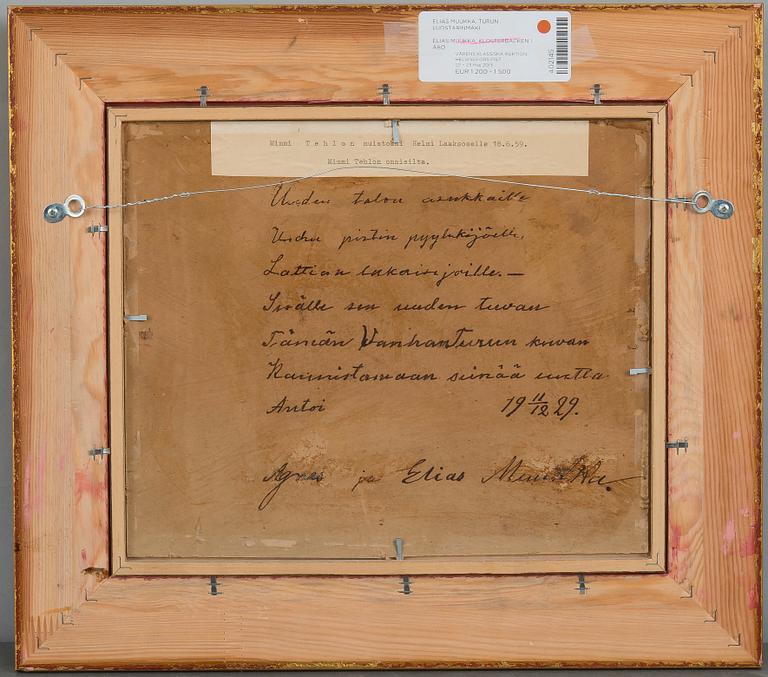 ELIAS MUUKKA, TURUN
LUOSTARINMÄKI
ELIAS MUUKKA, KLOSTERBACKEN I
ÅBO
VÅRENS KLASSISKA AUKTION
HELSINGFORS F197
EUR 1 200 - 1 500
402145
Minni Tehlon muistoksi Helmi Laaksoselle 18.6.59.
Minni Tehlon omaisilta.
Uuden talon asukkaille
Uuden pirtin pyyhkijöille,
Lattian lakaisijoille. —
Sisälle sen uuden tuvan
Tämän Vanhan Turun kuvan
Kaunistamaan seinää uutta
Antoi 19 11/12 29.
Agnes ja Elias Muukka.